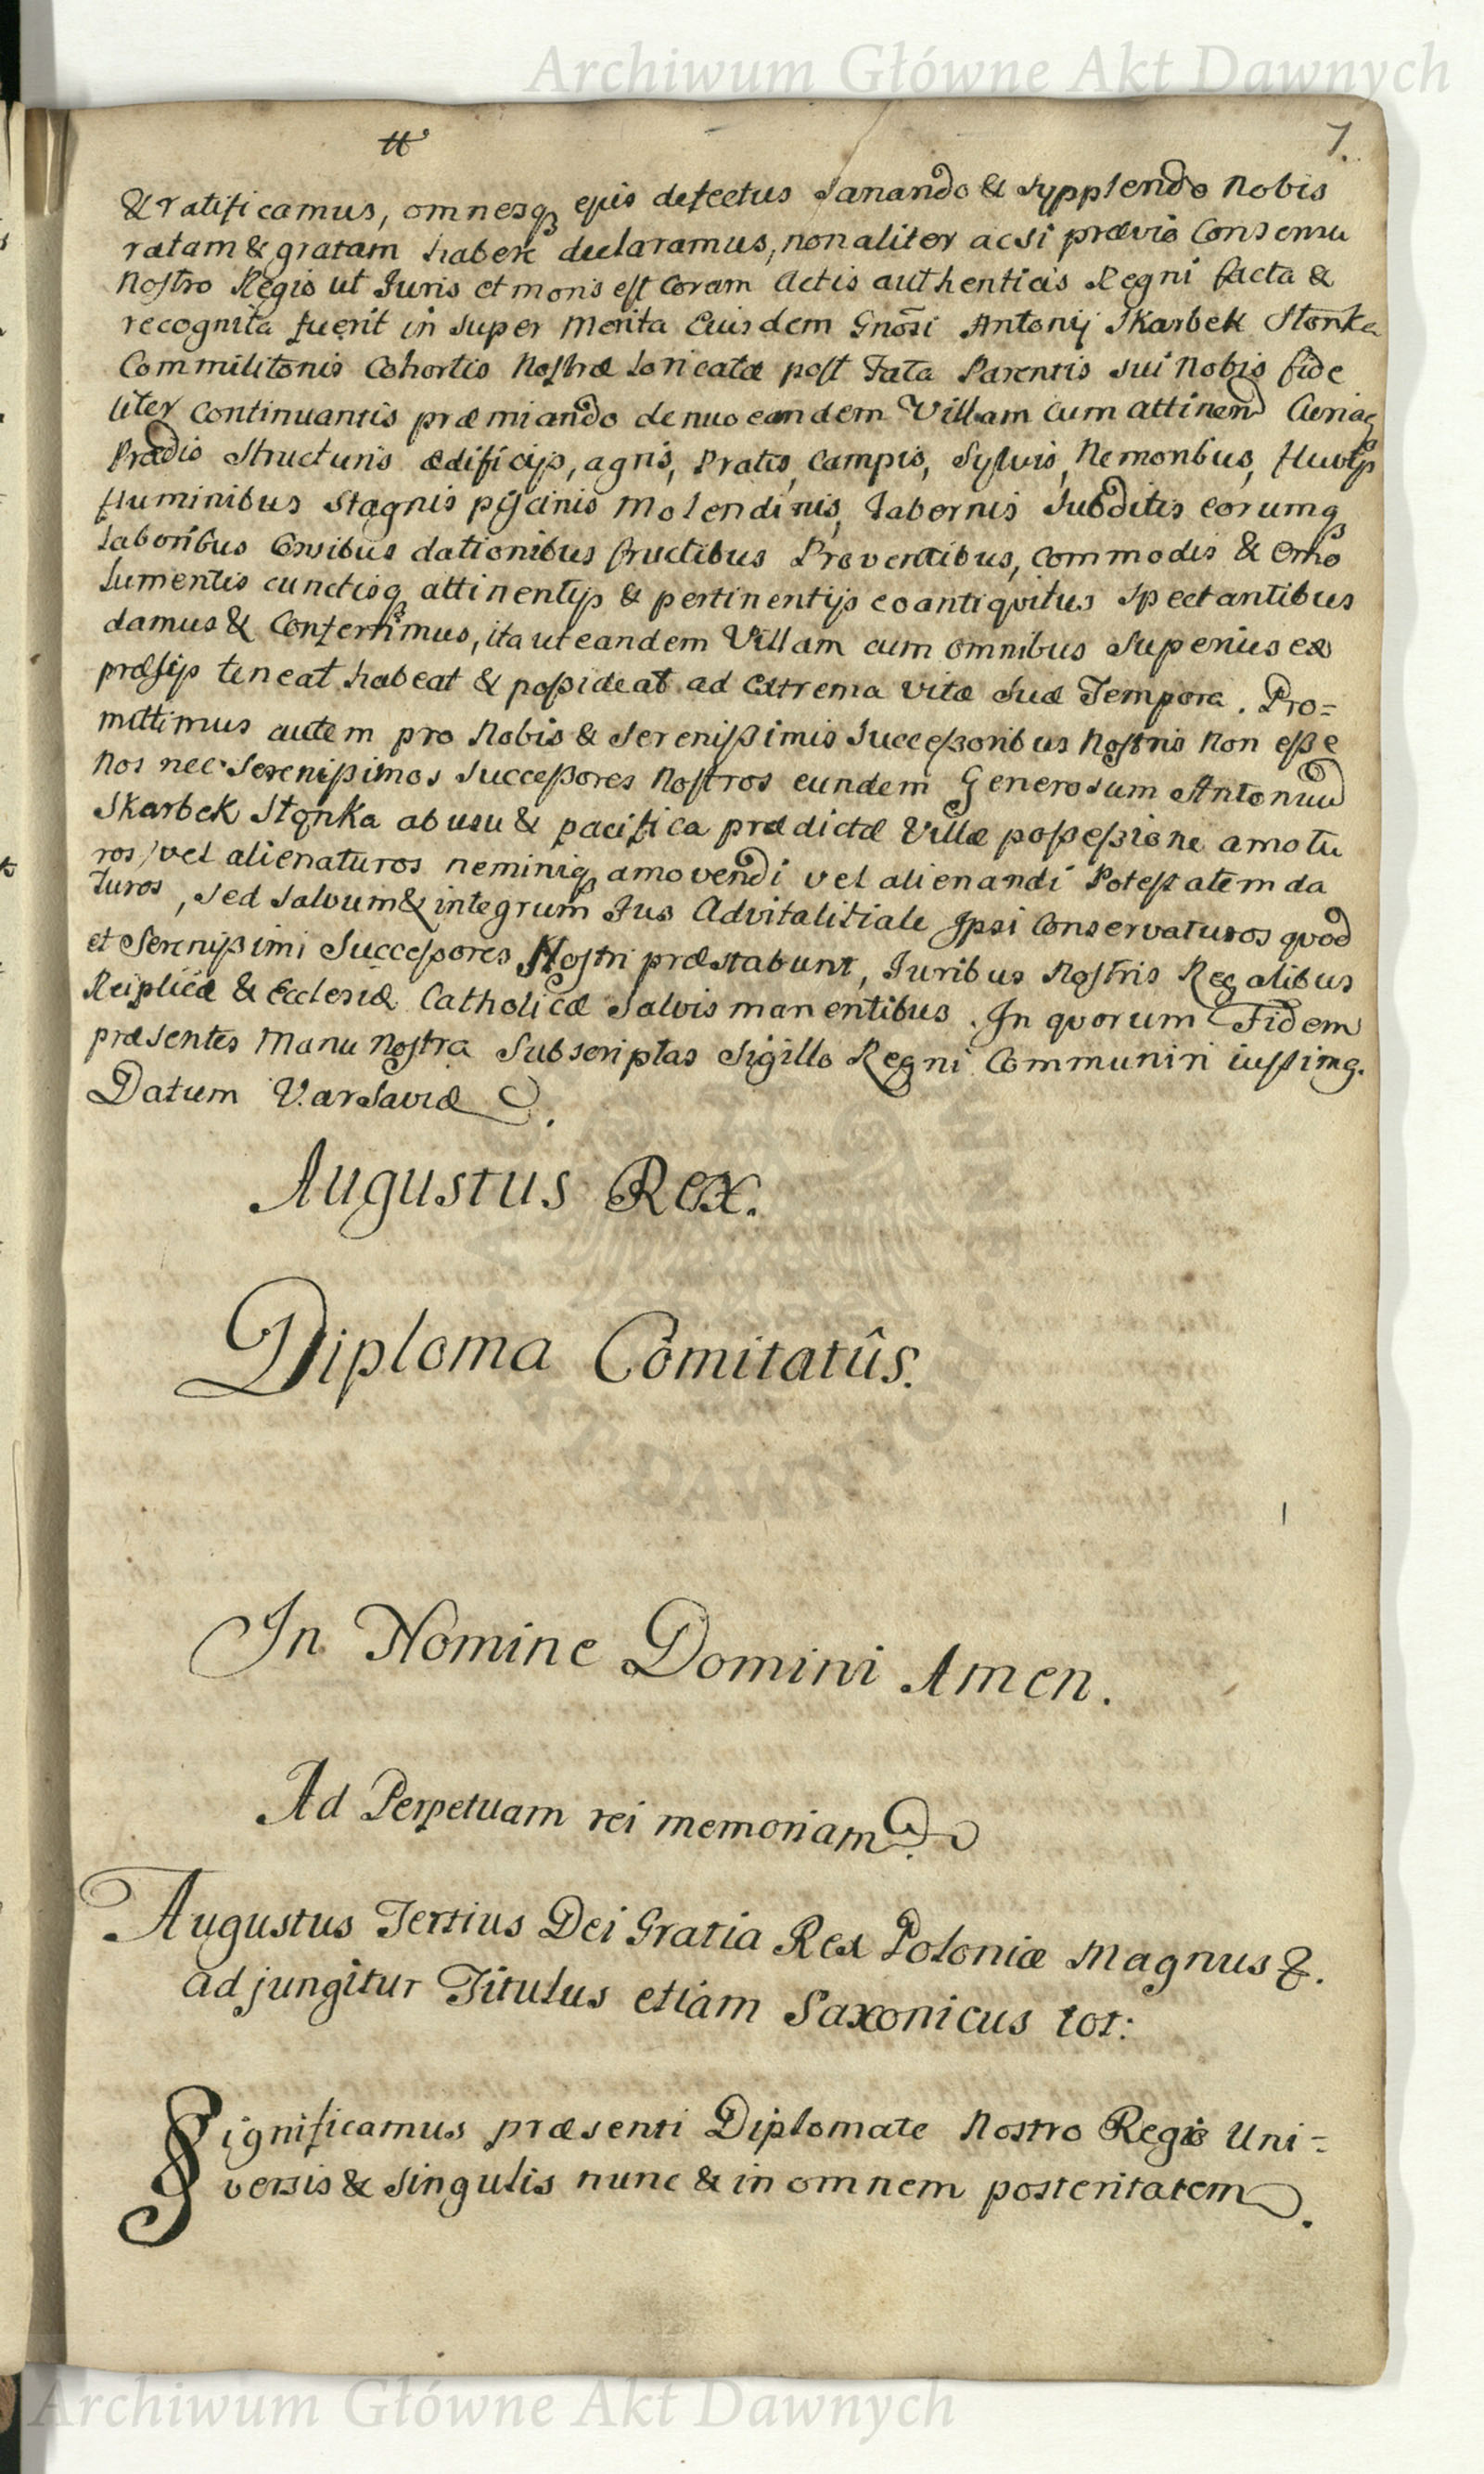 Archiwum Główne Akt Dawnych
7.
& ratificamus, omnesq₃ ejus defectus sanando & supplendo Nobis
ratam & gratam habere declaramus, non aliter acsi prævio Consensu
Nostro Regio ut Juris et moris est Coram Actis authenticis Regni facta &
recognita fuerit in super Merita Eiusdem Gnŏsi Antonij Skarbek Słonka
Commilitonis Cohortis Nostræ Loricatæ post Fata Parentis sui Nobis fide
liter Continuantis præmiando denuo eandem Villam Cum attinen
Prædio Structuris ædificijs, agris, Pratis, Campis, Sylvis, Nemoribus, fluvijs
fluminibus Stagnis piscinis Molendinis, Tabernis Subditis eorumq₃
Laboribus Censibus dationibus fructibus Proventibus, Commodis & Emo
lumentis cunctisq₃ attinentijs & pertinentijs eo antiquitus Spectantibus
damus & Conferimus, ita ut eandem Villam cum omnibus Superius ex
præssis teneat habeat & possideat ad extrema vitæ suæ Tempora. Pro=
mittimus autem pro Nobis & Serenissimis Successoribus Nostris Non esse
Nos nec Serenissimos Successores Nostros eundem Generosum Antonium
Skarbek Słonka ab usu & pacifica prædictæ Villæ possessione amotu
ros, vel alienaturos neminiq₃ amovendi vel alienandi Potestatem da
turos, sed Salvum & integrum Jus Advitalitiale Ipsi Conservaturos quod
et Serenissimi Successores Nostri præstabunt, Juribus Nostris Regalibus
Reiplicæ & Ecclesiæ Catholicæ Salvis manentibus. In quorum Fidem
præsentes Manu Nostra Subscriptas Sigillo Regni Communiri iussimg.
Datum Varsaviæ.
Augustus Rex.
Diploma Comitatûs.
In Nomine Domini Amen.
Ad Perpetuam rei memoriam.
Augustus Tertius Dei Gratia Rex Poloniæ Magnus &.
adjungitur Titulus etiam Saxonicus tot:
Significamus præsenti Diplomate Nostro Regio Uni=
versis & singulis nunc & in omnem posteritatem.
Archiwum Główne Akt Dawnych